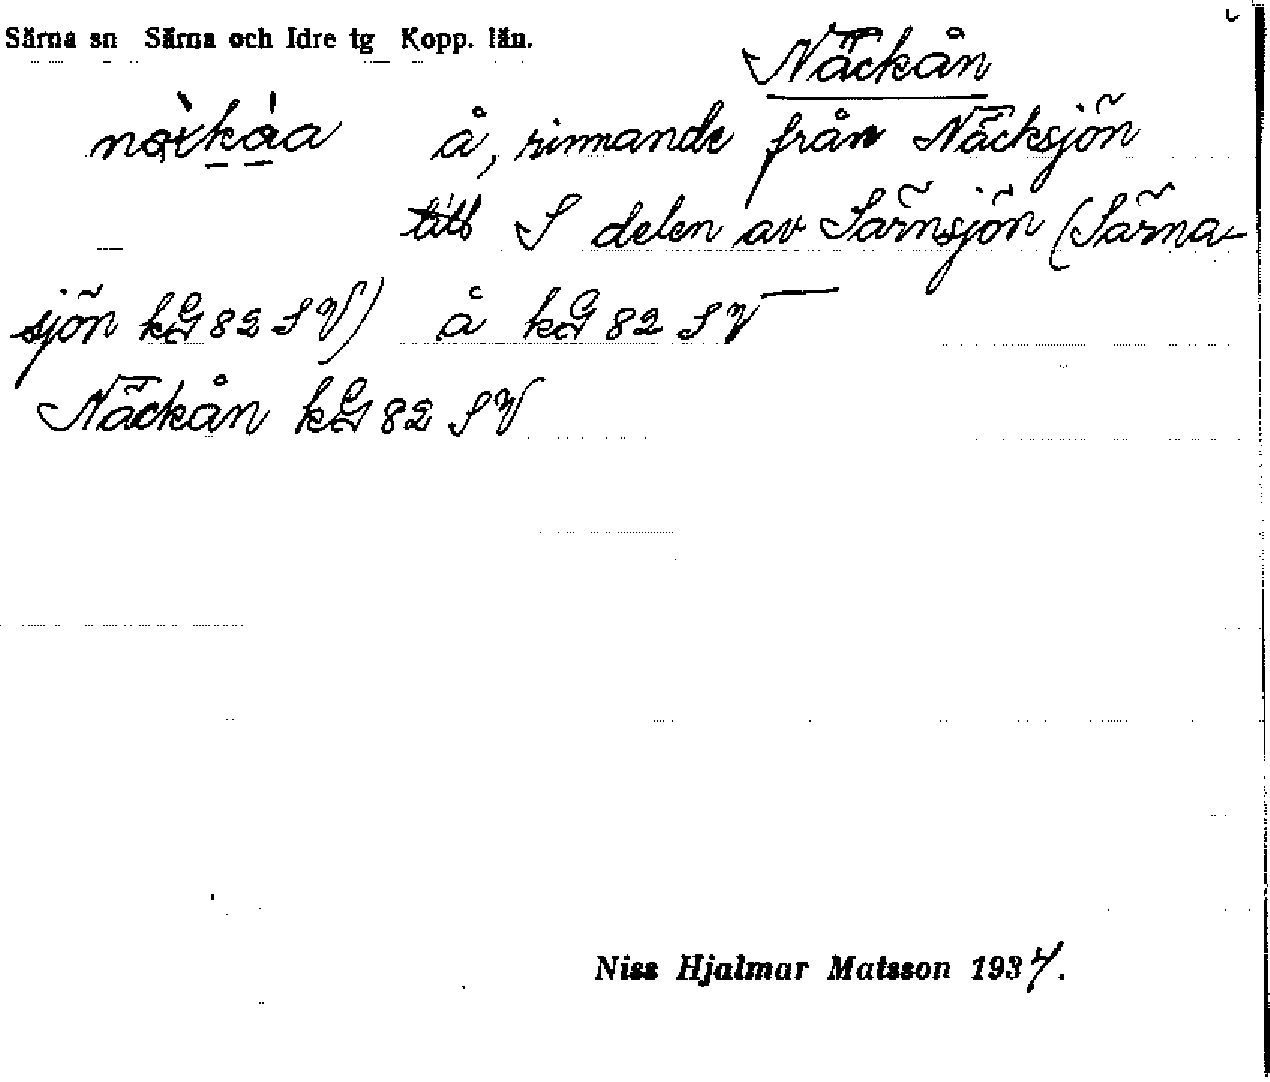 Särna sn Särna och Idre tg Kopp. län.
Näckån
å, rinnande från Näcksjön
till S delen av Särnsjön (Särna-
sjön kG 82 SV) å kG 82 SV
Näckån kG 82 SV
Niss Hjalmar Matsson 1934.